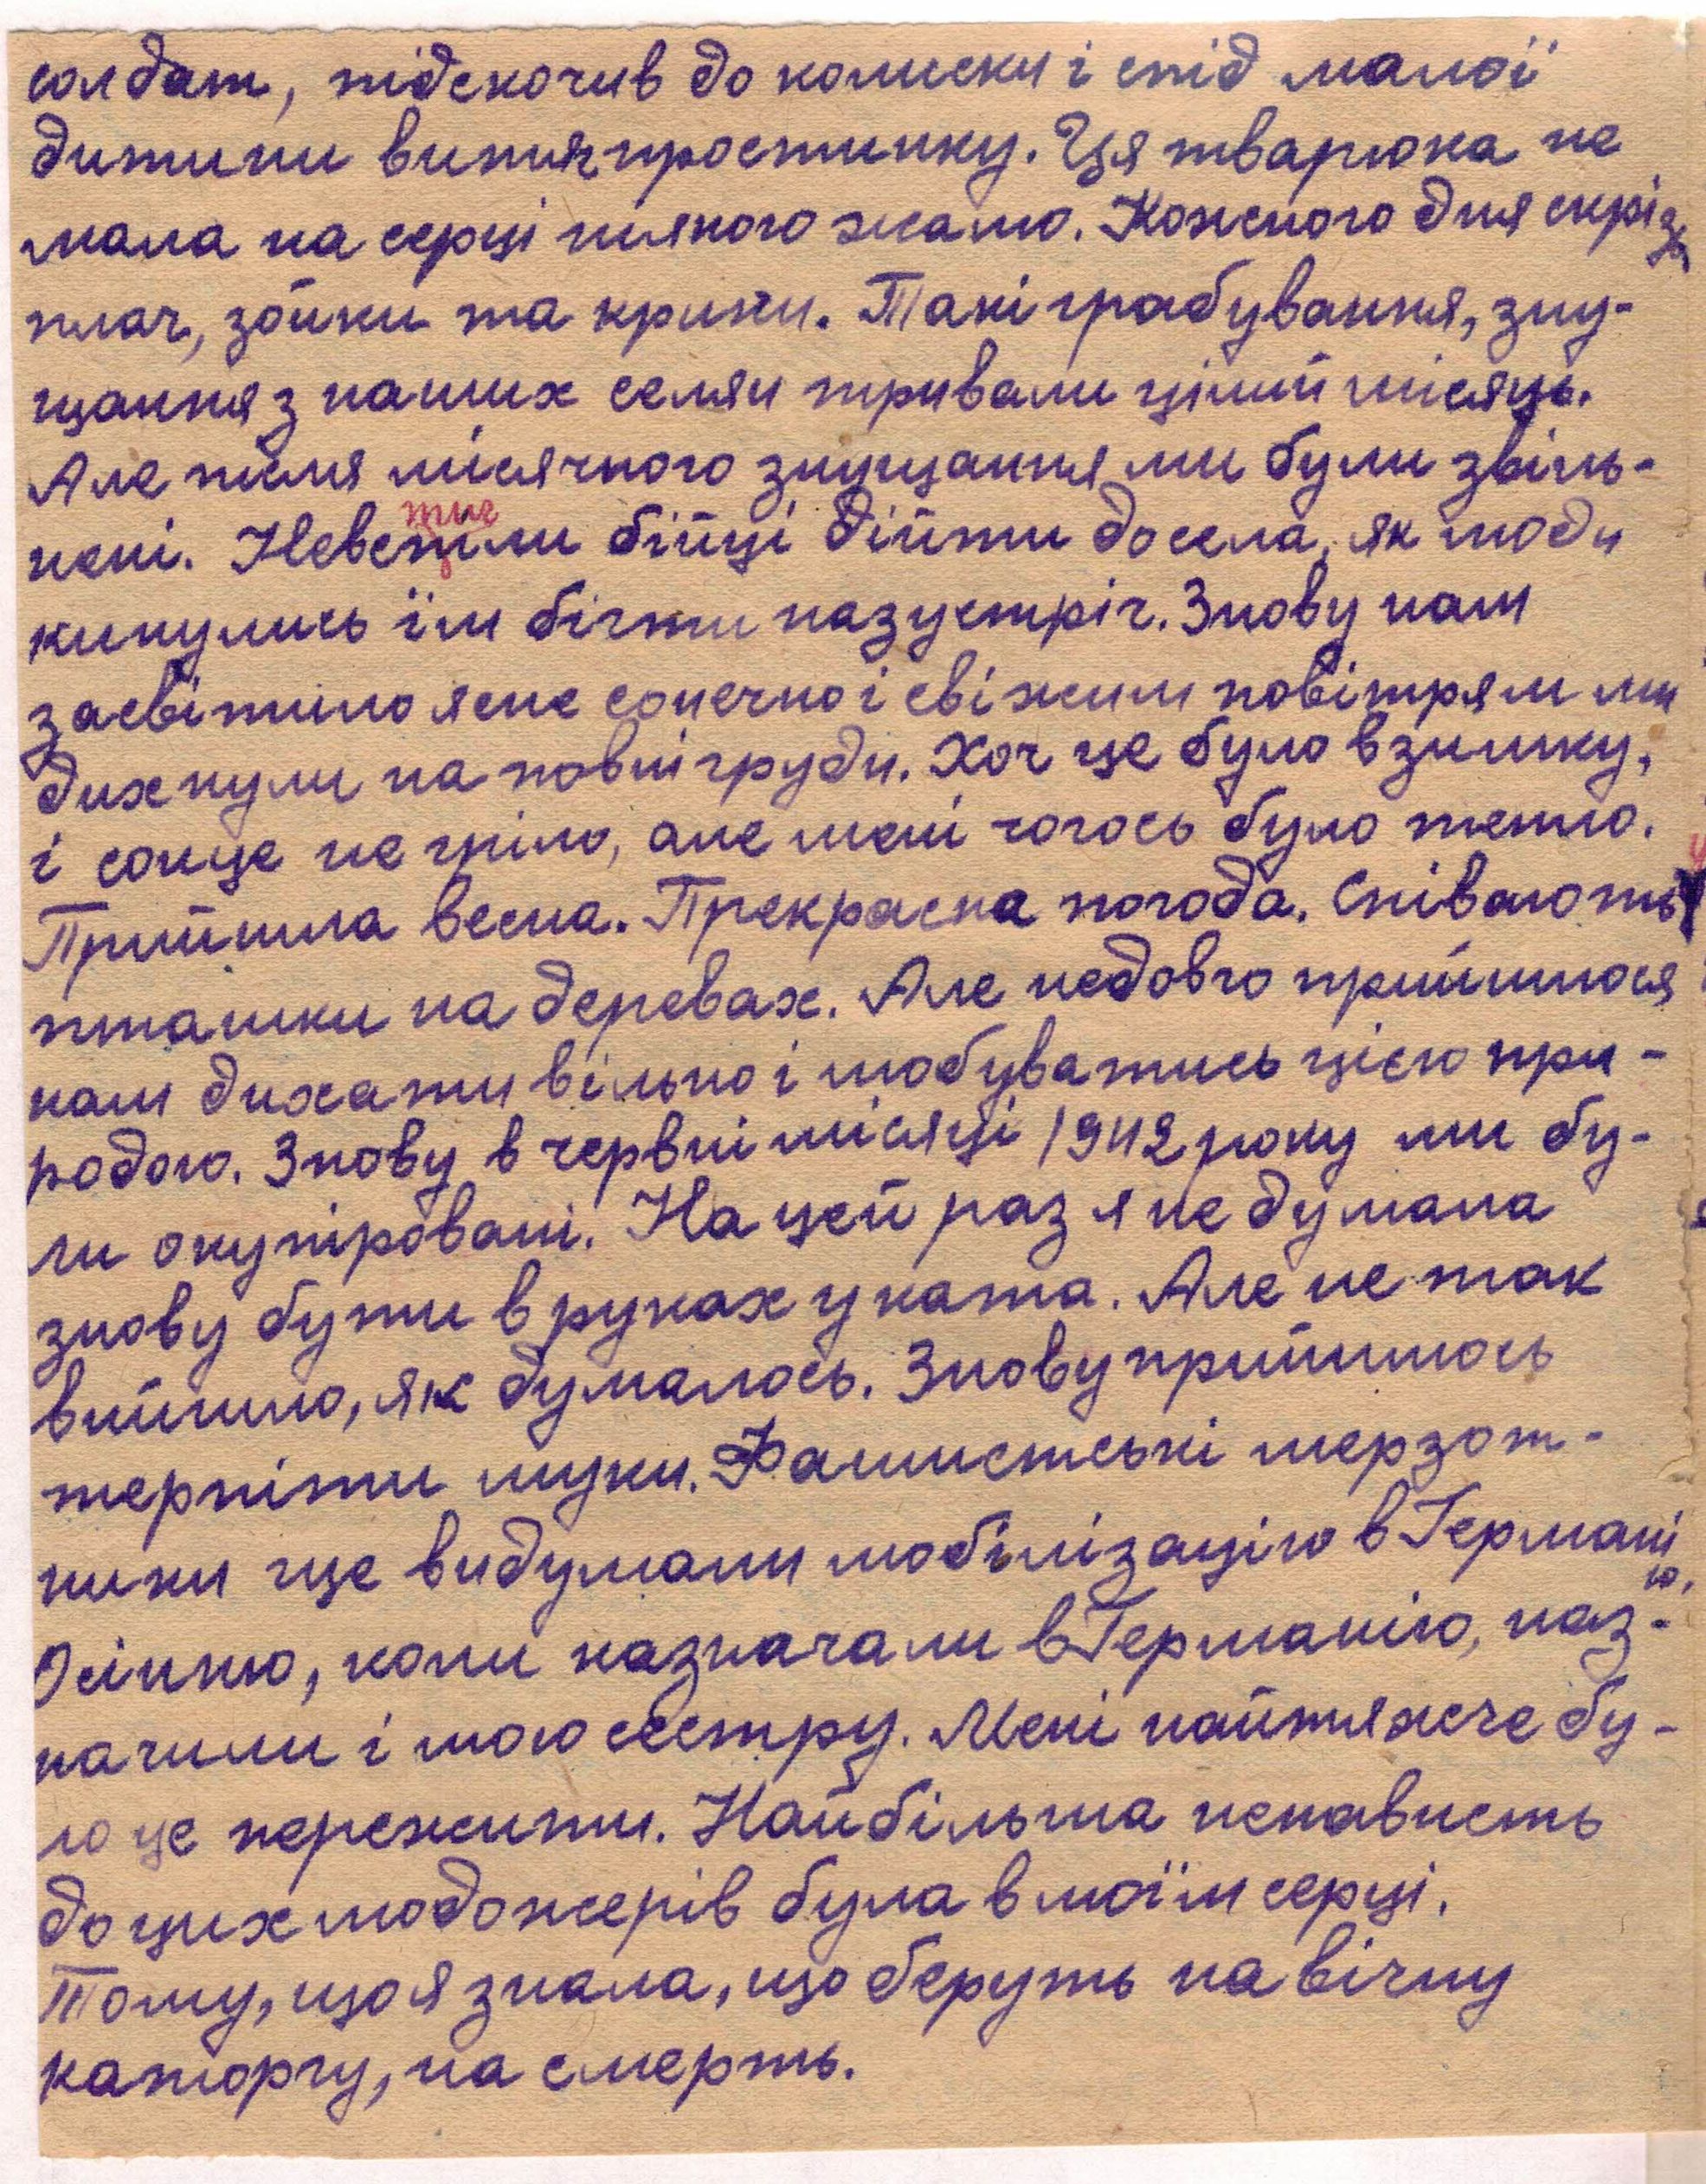 солдат, підскочив до колиски і спід малої
дитини виняв простинку. Ця тварюка не
мала на серці ніякого жалю. Кожного дня скрізь
плач, зойки та крики. Такі грабування, зну-
щання з наших селян тривали цілий місяць.
Але після місячного знущання ми були звіль-
нені. Не
тиг
ли бійці дійти до села, як люди
кинулись їм бігти назустріч. Знову нам
засвітило ясне сонечно і свіжим повітрям ми
дихнули на повні груди. Хоч це було взимку,
і сонце не гріло, але мені чогось було тепло.
Прийшла весна. Прекрасна погода. Співають
пташки на деревах. Але недовго прийшлося
нам дихати вільно і любуватись цією при-
родою. Знову в червні місяці 1942 року ми бу-
ли окупіровані. На цей раз я не думала
знову бути в руках у ката. Але не так
вийшло, як думалось. Знову прийшлось
терпіти муки. Фашистські мерзот-
ники ще видумали мобілізацію в Германію.
Осінню, коли назначали в Германію, наз-
начили і мою сестру. Мені найтяжче бу-
ло це пережити. Найбільша ненависть
до цих людожерів була в моїм серці.
Тому, що я знала, що беруть на вічну
каторгу, на смерть.